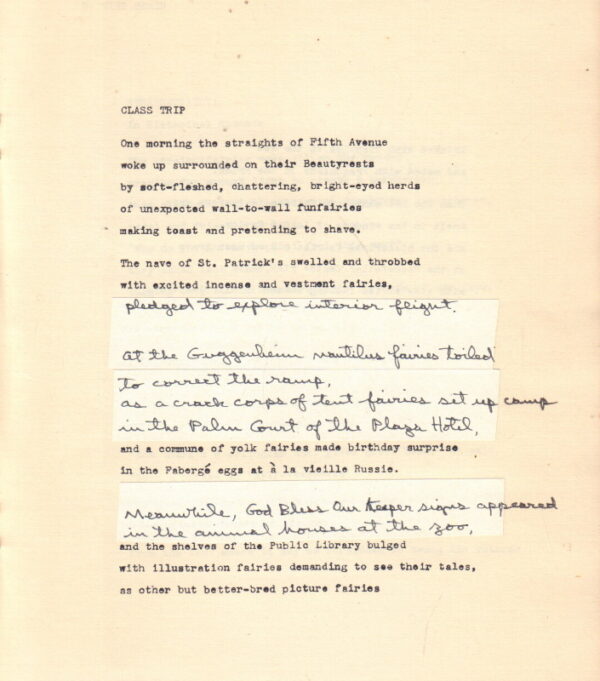 CLASS TRIP
One morning the straights of Fifth Avenue
woke up surrounded on their Beautyrests
by soft-fleshed, chattering, bright-eyed herds
of unexpected wall-to-wall funfairies
making toast and pretending to shave.
The nave of St. Patrick's swelled and throbbed
with excited incense and vestment fairies,
pledged to explore interior flight.
At the Guggenheim nautilus fairies toiled
to correct the ramp,
as a crack corps of tent fairies set up camp
in the Palm Court of the Plaza Hotel,
and a commune of yolk fairies made birthday surprise
in the Fabergé eggs at à la vieille Russie.
Meanwhile, God Bless Our Keeper signs appeared
in the animal houses at the zoo,
and the shelves of the Public Library bulged
with illustration fairies demanding to see their tales,
as other but better-bred picture fairies